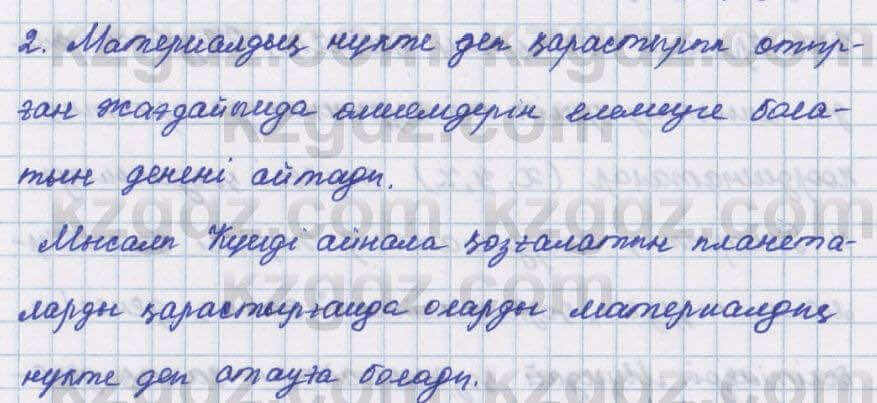 2. Материалдық нүкте деп қарастырып отыр-
ған жағдайында өлшемдерін елемеуге бола-
тын денені айтады.
Мысалы Күнді айнала қозғалатын планета-
ларды қарастырғанда оларды материалдық
нүкте деп атауға болады.